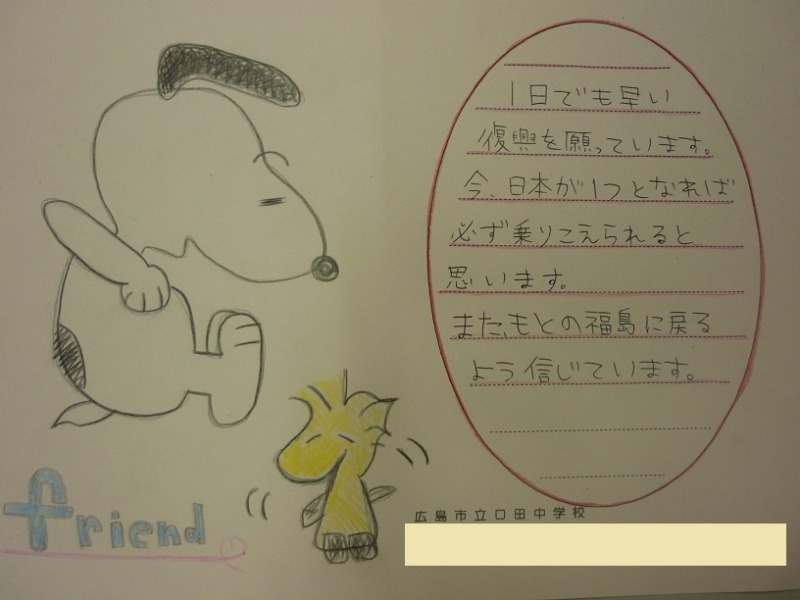 1日でも早い
復興を願っています。
今、日本が1つとなれば
必ず乗りこえられると
思います。
また、もとの福島に戻る
よう信じています。
friend
広島市立口田中学校